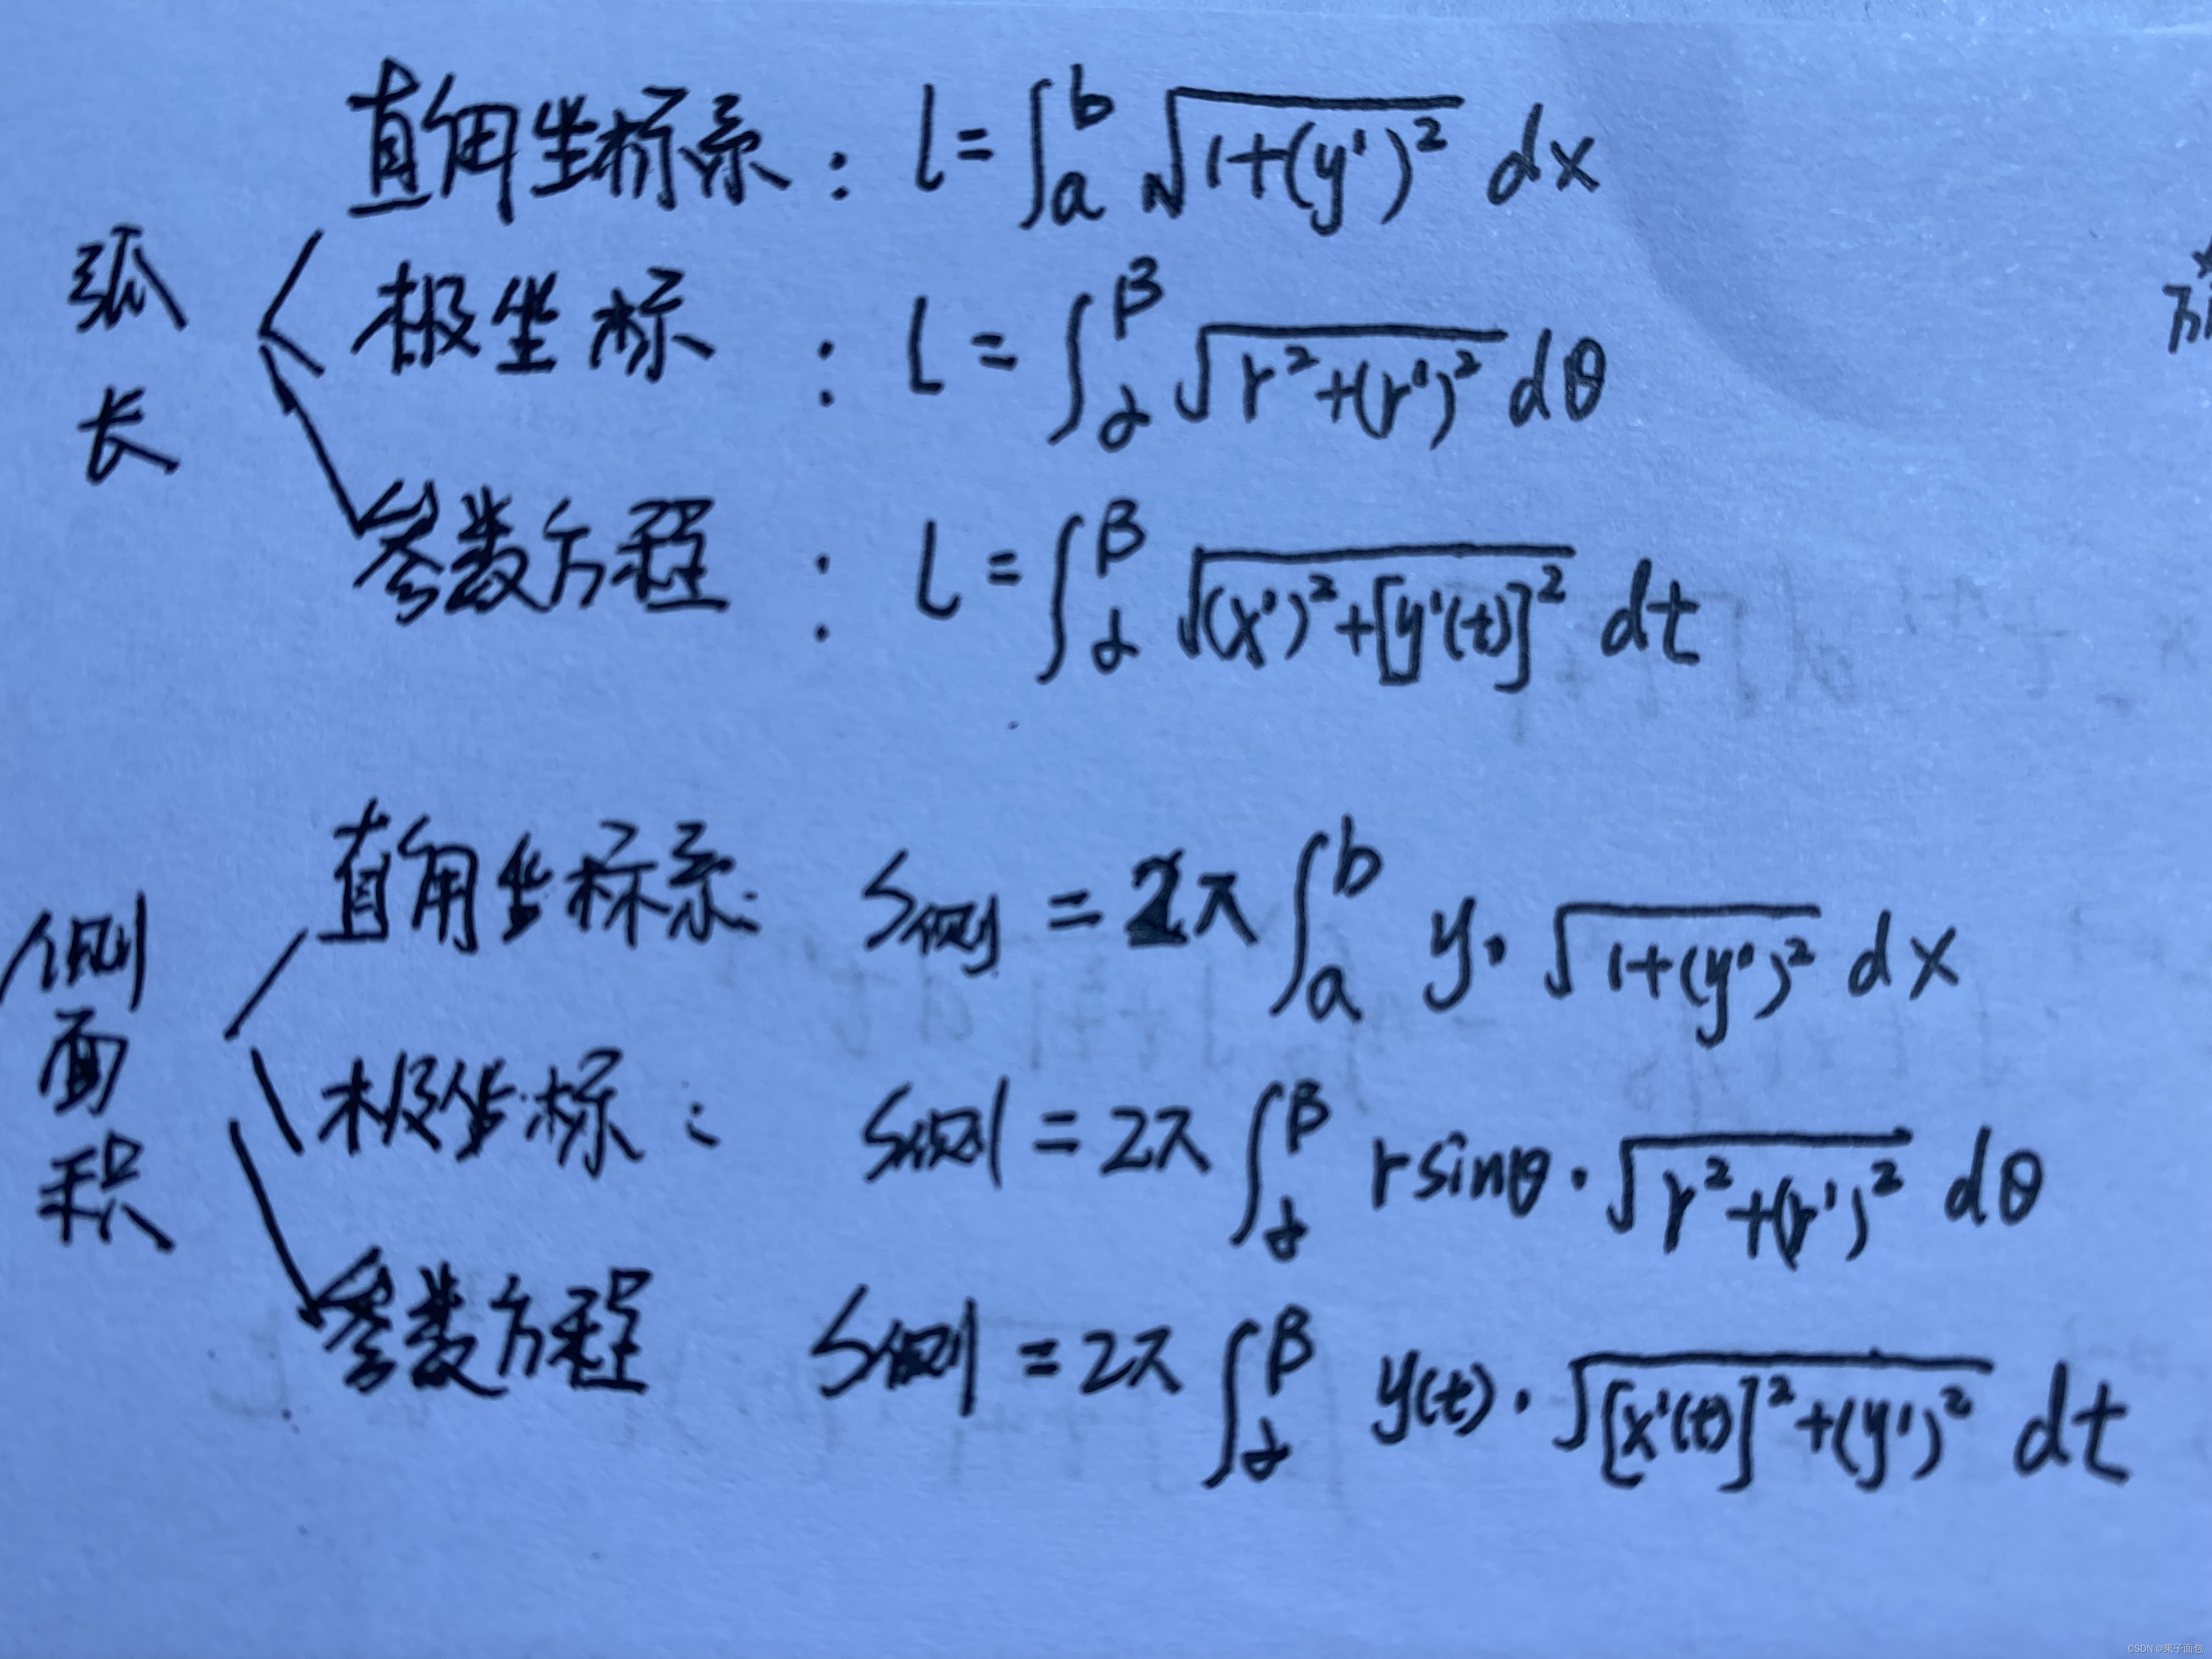 弧长
直角坐标系: l=∫_a^b √(1+(y')²) dx
极坐标: l=∫_α^β √(r²+(r')²) dθ
参数方程: l=∫_α^β √((x')²+[y'(t)]²) dt
侧面积
直角坐标系: S侧=2π∫_a^b y·√(1+(y')²) dx
极坐标: S侧=2π∫_α^β rsinθ·√(r²+(r')²) dθ
参数方程 S侧=2π∫_α^β y(t)·√([x'(t)]²+(y')²) dt
CSDN @果子面包